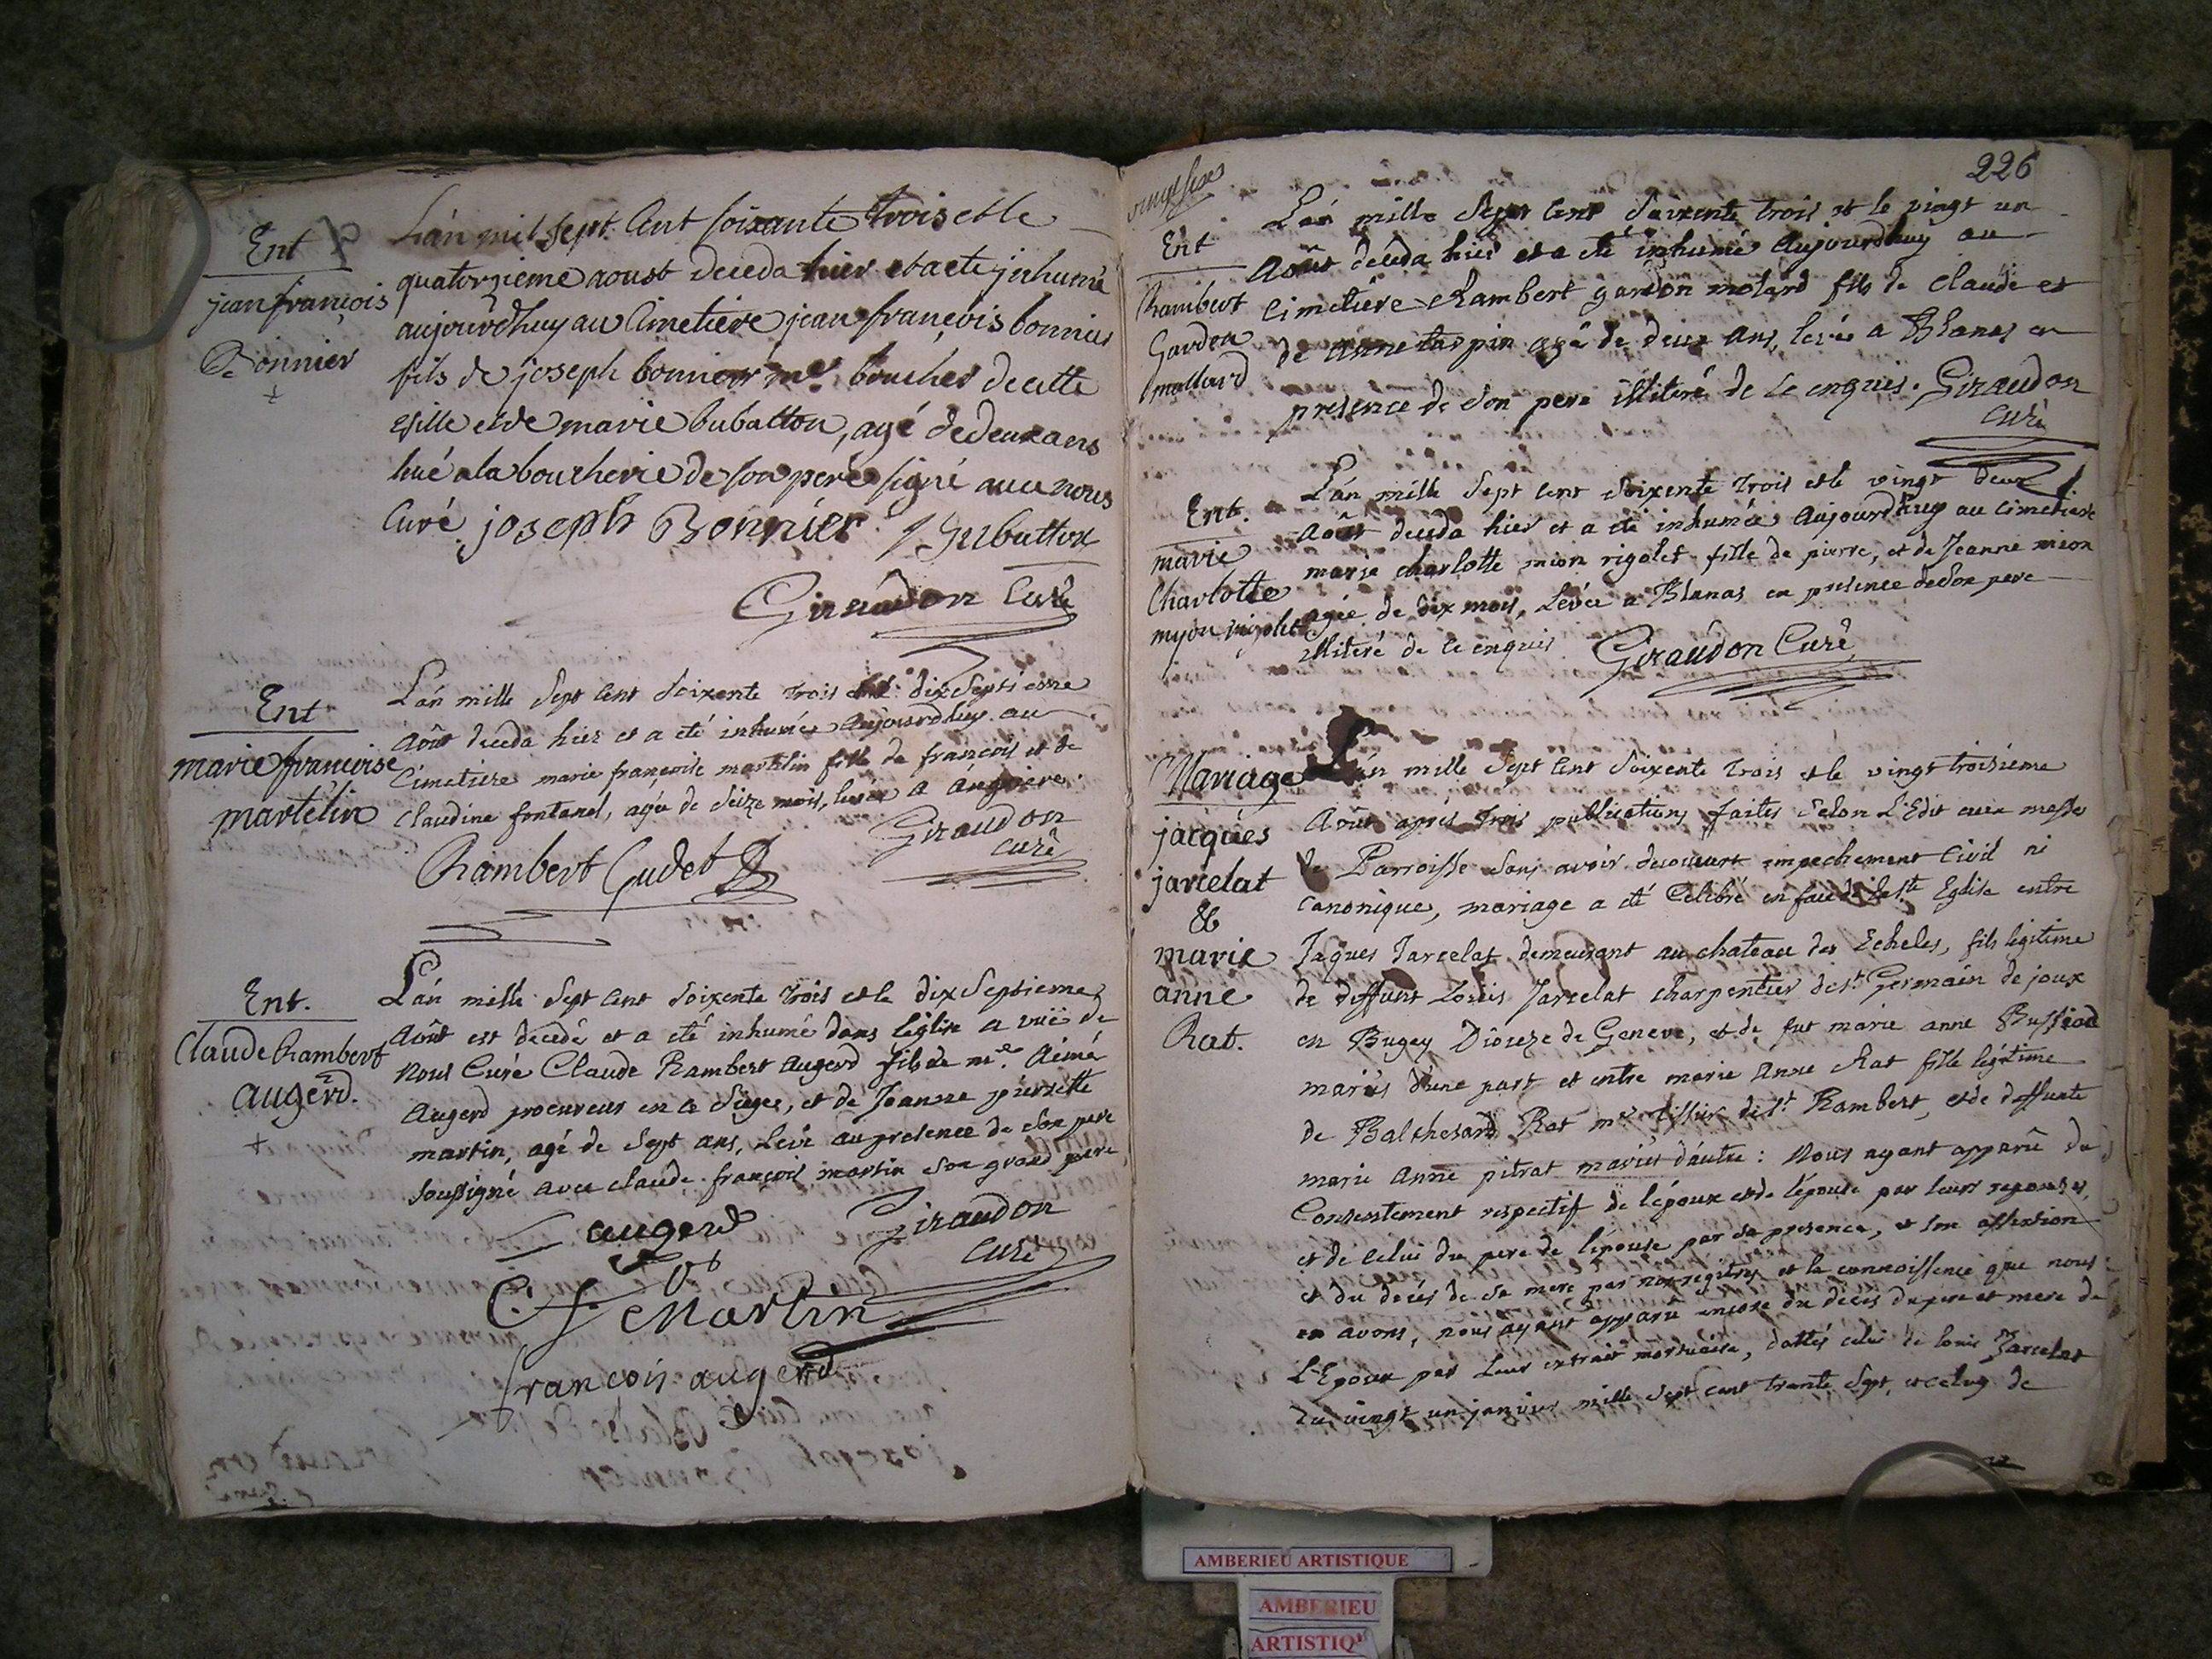 Ent
jean françois
Bonnier
L'an mil sept Cent soixante trois et le
quatorzieme aoust deceda hier et a eté inhumé
aujourd'huy au Cimetiere jean françois bonnier
fils de joseph bonnier me boucher de cette
ville et de marie bubatton, agé de deux ans
levé a la boucherie de son pere signé avec nous
Curé. joseph Bonnier
Giraudon Curé
Ent
marie françoise
martelin
L'an mille Sept Cent Soixente trois et le dix Septieme
Août deceda hier et a eté inhumée aujourdhuy au
Cimetiere marie françoise martelin fille de françois et de
Claudine fontanel, agée de Seize mois, levée a angriere.
Giraudon
curé
Rambert Gudet
Ent.
Claude Rambert
augerd.
L'an mille Sept Cent Soixente trois et le dix Septieme
Août est decedé et a eté inhumé dans l'eglise a vuë de
Nous Curé Claude Rambert Augerd fils de me. Aimé
Augerd procureur en ce Siege, et de Jeanne pierrette
martin, agé de Sept ans, Levé au presence de Son pere
Soussigné avec claude françois martin Son grand pere
augerd
Giraudon
Curé
C. f Martin
françois augerd
226
vingt six
Ent
Rambert
Gardon
mollard
L'an mille Sept Cent Soixente trois et le vingt un
Août deceda hier et a eté inhumé Aujourdhuy au
Cimetiere Rambert gardon molard fils de Claude et
de anne taspin agé de deux ans, levé a Blanas en
presence de Son pere illiteré de ce enquis. Giraudon
Curé
Ent.
marie
Charlotte
myon rigolet
L'an mille Sept Cent Soixente trois et le vingt deux
Août deceda hier et a eté inhumée Aujourdhuy au Cimetiere
marie charlotte mion rigolet fille de pierre, et de Jeanne mion
agée de dix mois, Levée a Blanas en presence de Son pere
illiteré de ce enquis Giraudon Curé
Mariage
jacques
jarcelat
&
marie
anne
Rat.
L'an mille Sept Cent Soixente trois et le vingt troisieme
Août aprés trois publications faites Selon L'Edit aux messes
de Parroisse Sans avoir decouvert empechement Civil ni
Canonique, mariage a eté Celebré en face de Ste Eglise entre
Jaques Jarcelat demeurant au chateau des Echeles, fils legitime
de deffunt Louis Jarcelat charpentier de St Germain de joux
en Bugey Dioceze de Geneve, et de fut marie anne Buffiod
mariés d'une part et entre marie Anne Rat fille légitime
de Balthesard Rat me tissier de St Rambert, et de deffunte
marie Anne pitrat mariés d'autre : Nous ayant apparû du
Consentement respectif de l'époux et de l'épouse par leurs reponses,
et de celui du pere de l'épouse par Sa presence, et Son assertion
et du decés de Sa mere par nos régitres et la connoissence que nous
en avons, nous ayant apparû encore du décés du pere et mere de
L'Epoux par Leur extrait mortuaire, dattés celui de louis Jarcelat
du vingt un janvier mille Sept Cent trente Sept, et celuy de
AMBERIEU ARTISTIQUE
AMBERIEU
ARTISTIQ